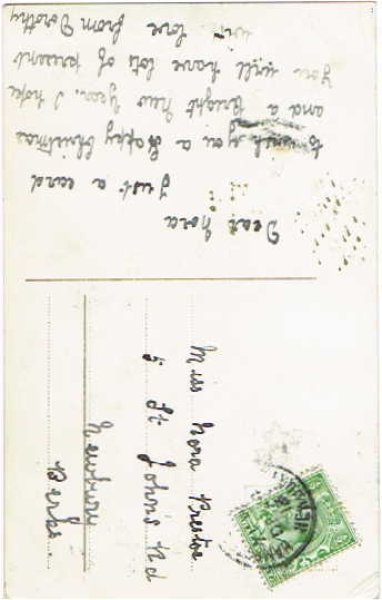 Dear Nora
Just a card
to wish you a Happy Christmas
and a Bright New Year. I hope
you will have lots of presents
with love
from Dorothy
Miss Nora
5 St John's Rd
Newbury
Berks.